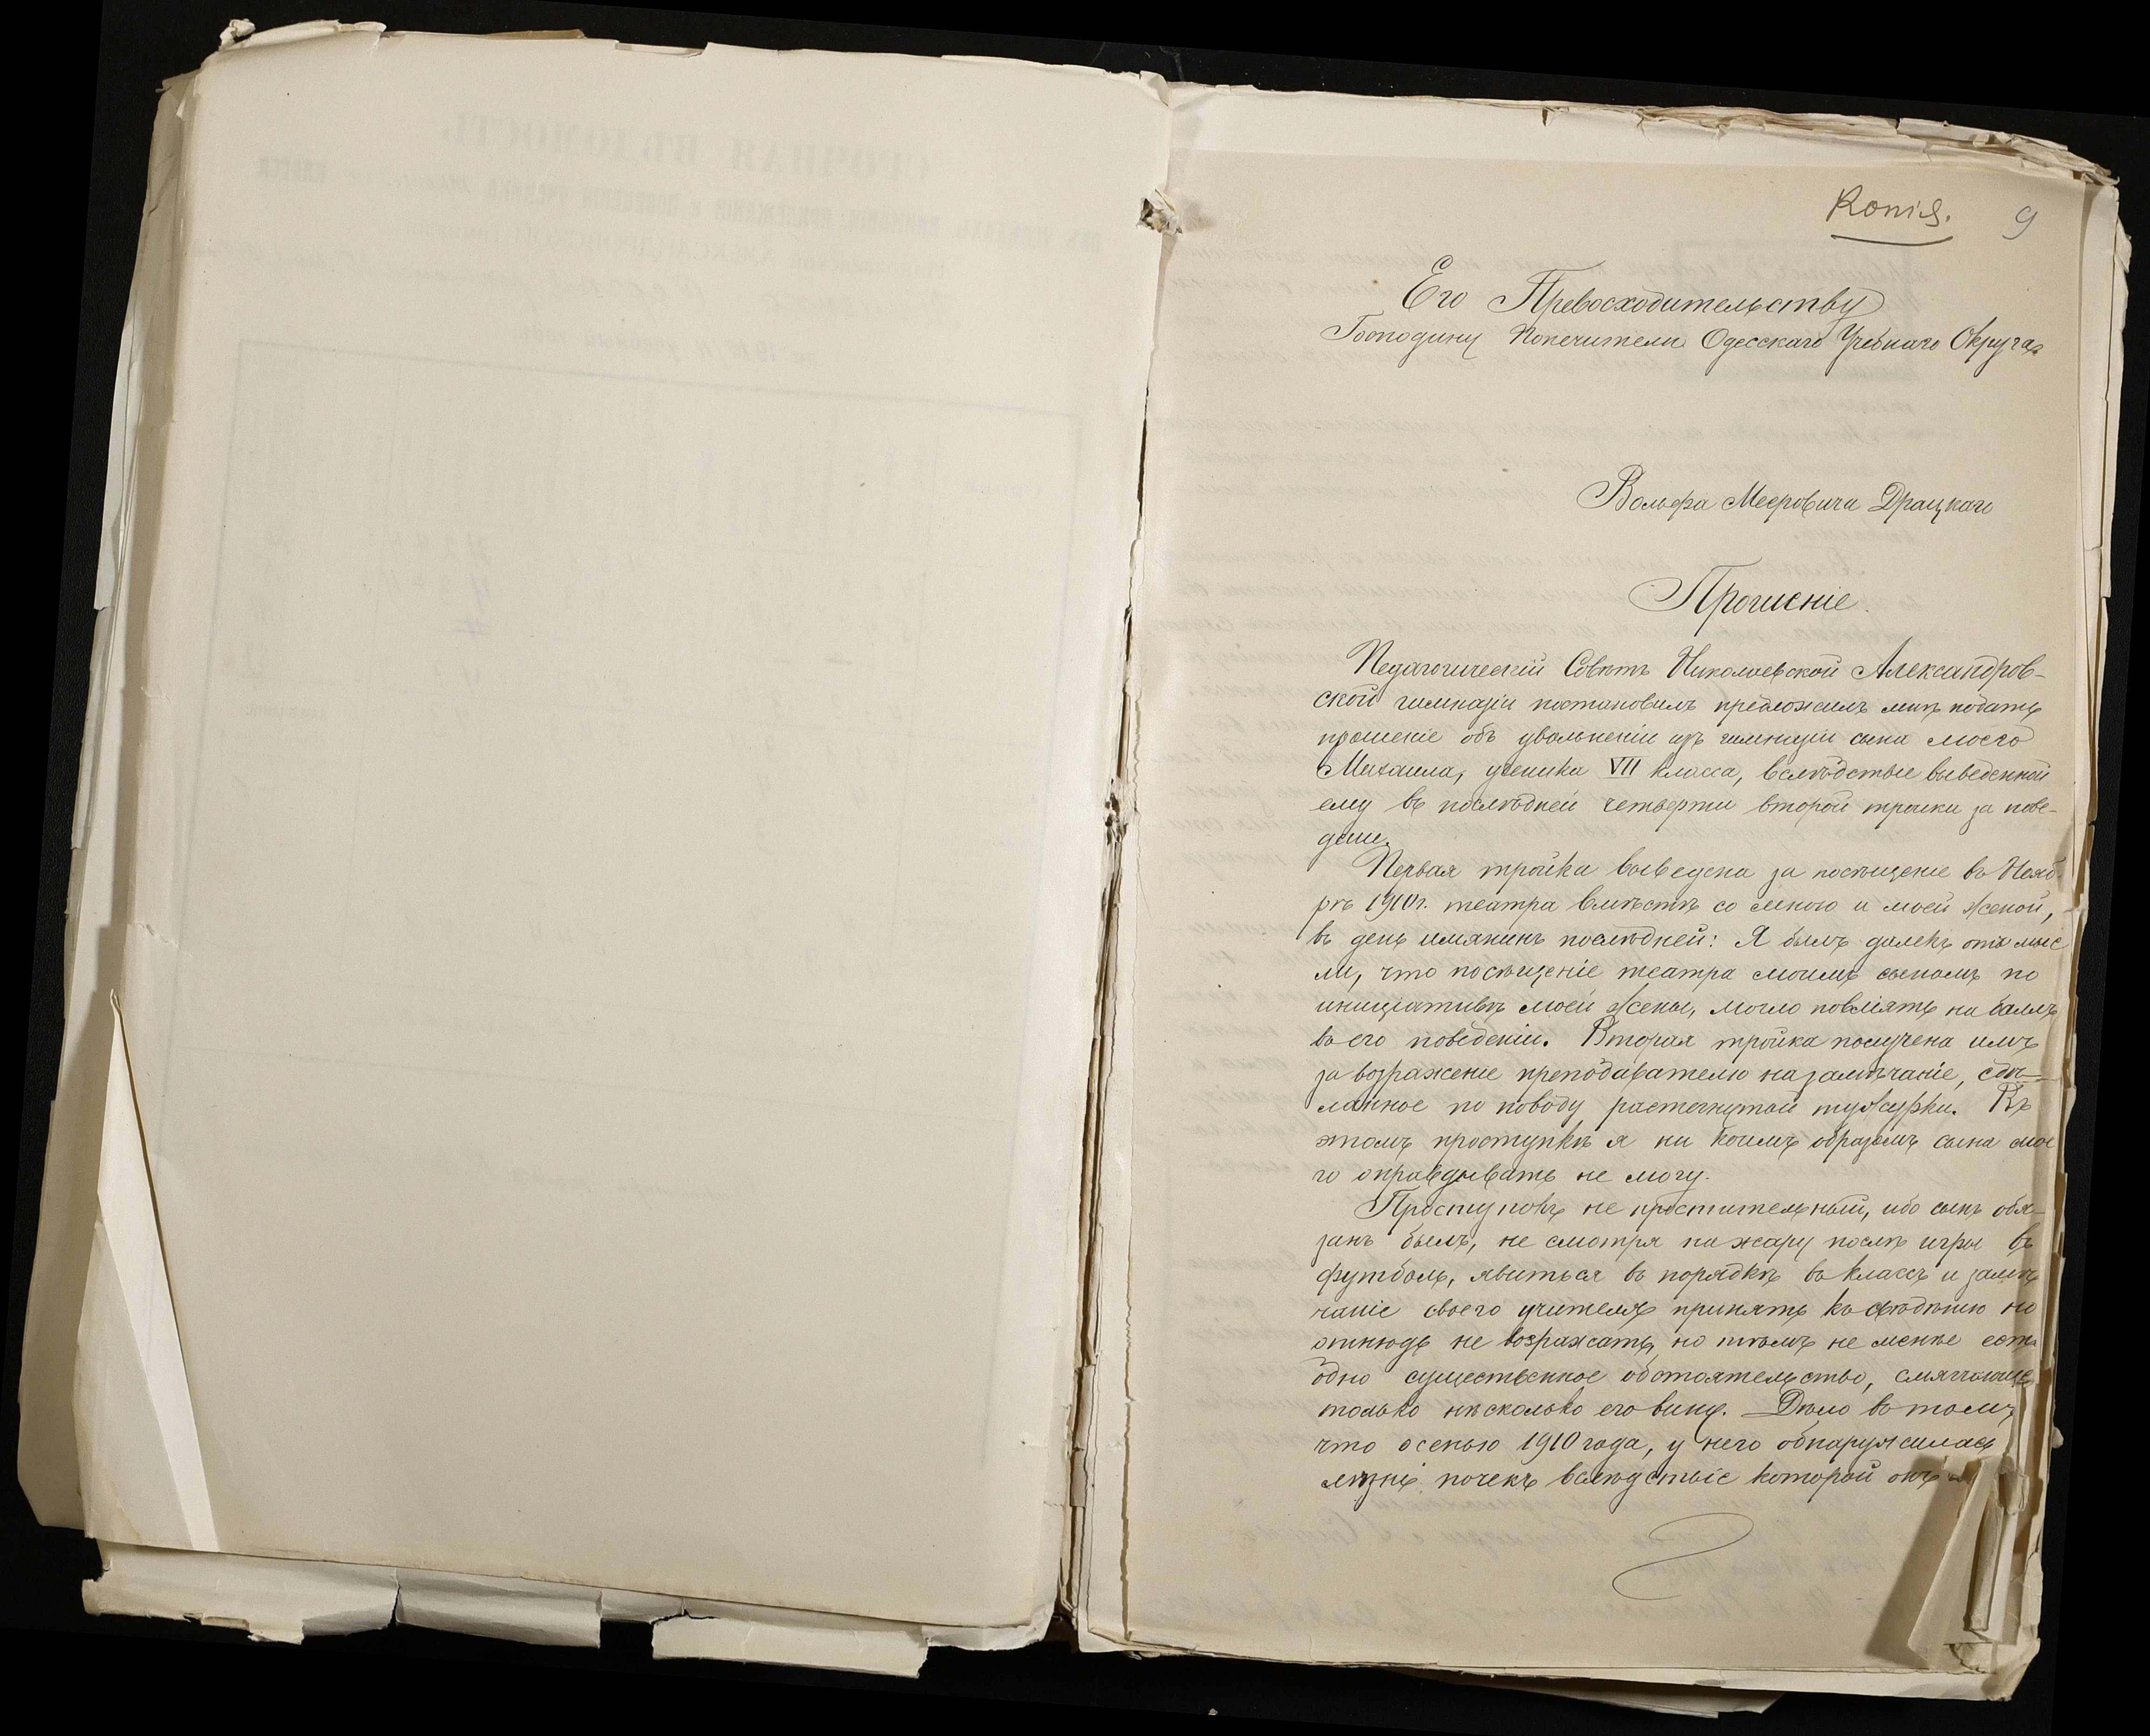 Копія.
9
Его Превосходительству
Господину Попечителю Одесскаго Учебнаго Округа
Вольфа Мееровича Драцкаго
Прошеніе.
Педагогическій Совѣтъ Николаевской Александров-
ской гимназіи постановилъ предложилъ мнѣ подать
прошеніе объ увольненіи изъ гимназіи сына моего
Михаила, ученика VII класса, вслѣдствіе выведенной
ему въ послѣдней четверти второй тройки за пове-
деніе.
Первая тройка выведена за посѣщеніе въ Нояб-
рѣ 1910 г. театра вмѣстѣ со мною и моей женой,
въ день имянинъ послѣдней: Я былъ далекъ отъ мыс
ли, что посѣщеніе театра моимъ сыномъ по
иниціативѣ моей жены, могло повліять на баллъ
въ его поведеніи. Вторая тройка получена имъ
за возраженіе преподавателю на замѣчаніе, сдѣ-
ланное по поводу растегнутой тужурки. Въ
этомъ проступкѣ я ни коимъ образомъ сына мое
го оправдывать не могу.
Проступокъ не простительный, ибо сынъ обя-
занъ былъ, не смотря на жару послѣ игры въ
футболъ, явиться въ порядкѣ въ классъ и замѣ
чаніе своего учителя принять къ свѣдѣнію но
отнюдь не возражать, но тѣмъ не менѣе есть
одно существенное обстоятельство, смягчающее
только нѣсколько его вину. Дѣло въ томъ,
что осенью 1910 года, у него обнаружилась
лѣзнь почекъ вслѣдствіе которой онъ